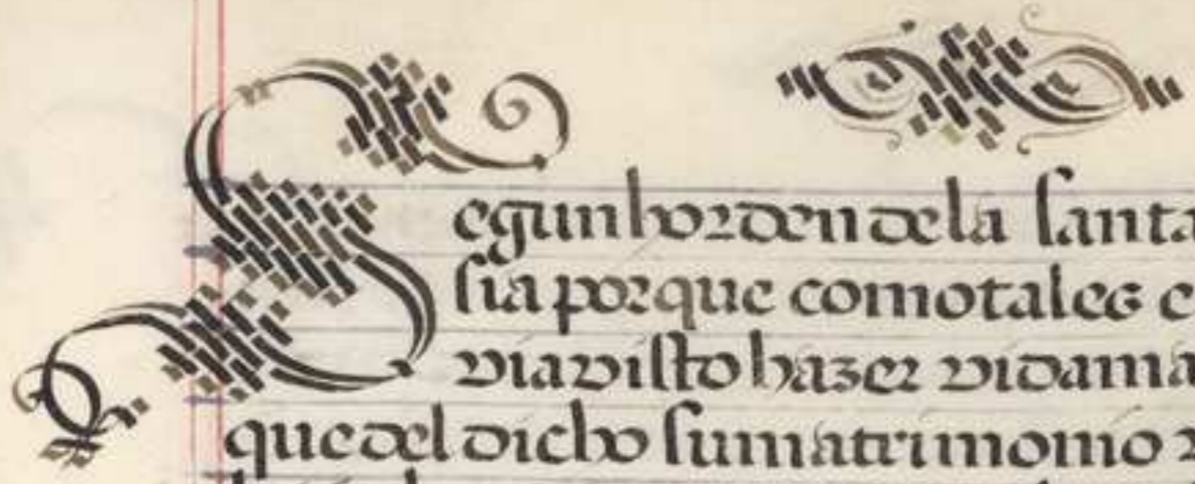 Segun horden de la santa
sia porque como tales
via visto hazer vida ma
que del dicho su matrimonio